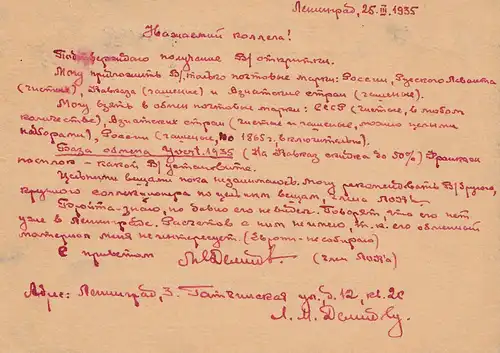 Ленинград, 25/III 1935
Уважаемый коллега!
Подтверждаю получение В/ открытки.
Могу предложить В/ только почтовые марки: России, Русского Леванта
(чистые), Кавказа (гашеные) и Азиатских стран (гашеные).
Могу взять в обмен почтовые марки: СССР (чистые, в любом
количестве), Азиатских стран (чистые и гашеные, можно целыми
наборами), России (гашеные, по 1865г. включительно)
База обмена 1935 (На Кавказ скидка до 50%)
послов - какой В/ установите.
Цельными вещами пока не занимаюсь. Могу рекомендовать В/ другого,
крупного коллекционера по цельным вещам, члена
знаю, но давно его не видел. Говорят, что его нет
уже в Ленинграде. Расчетов с ним не имею, т.к. его обменный
материал меня не интересует. (Европ. - не собираю)
С приветом (член
Адрес: Ленинград, 3. Гатчинская ул. д. 12, кв. 26
Л. М. Демидову.